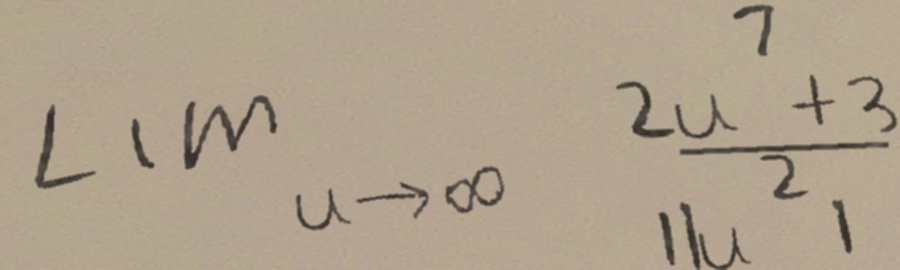 Lim u→∞ 2u⁷ + 3
11u² 1